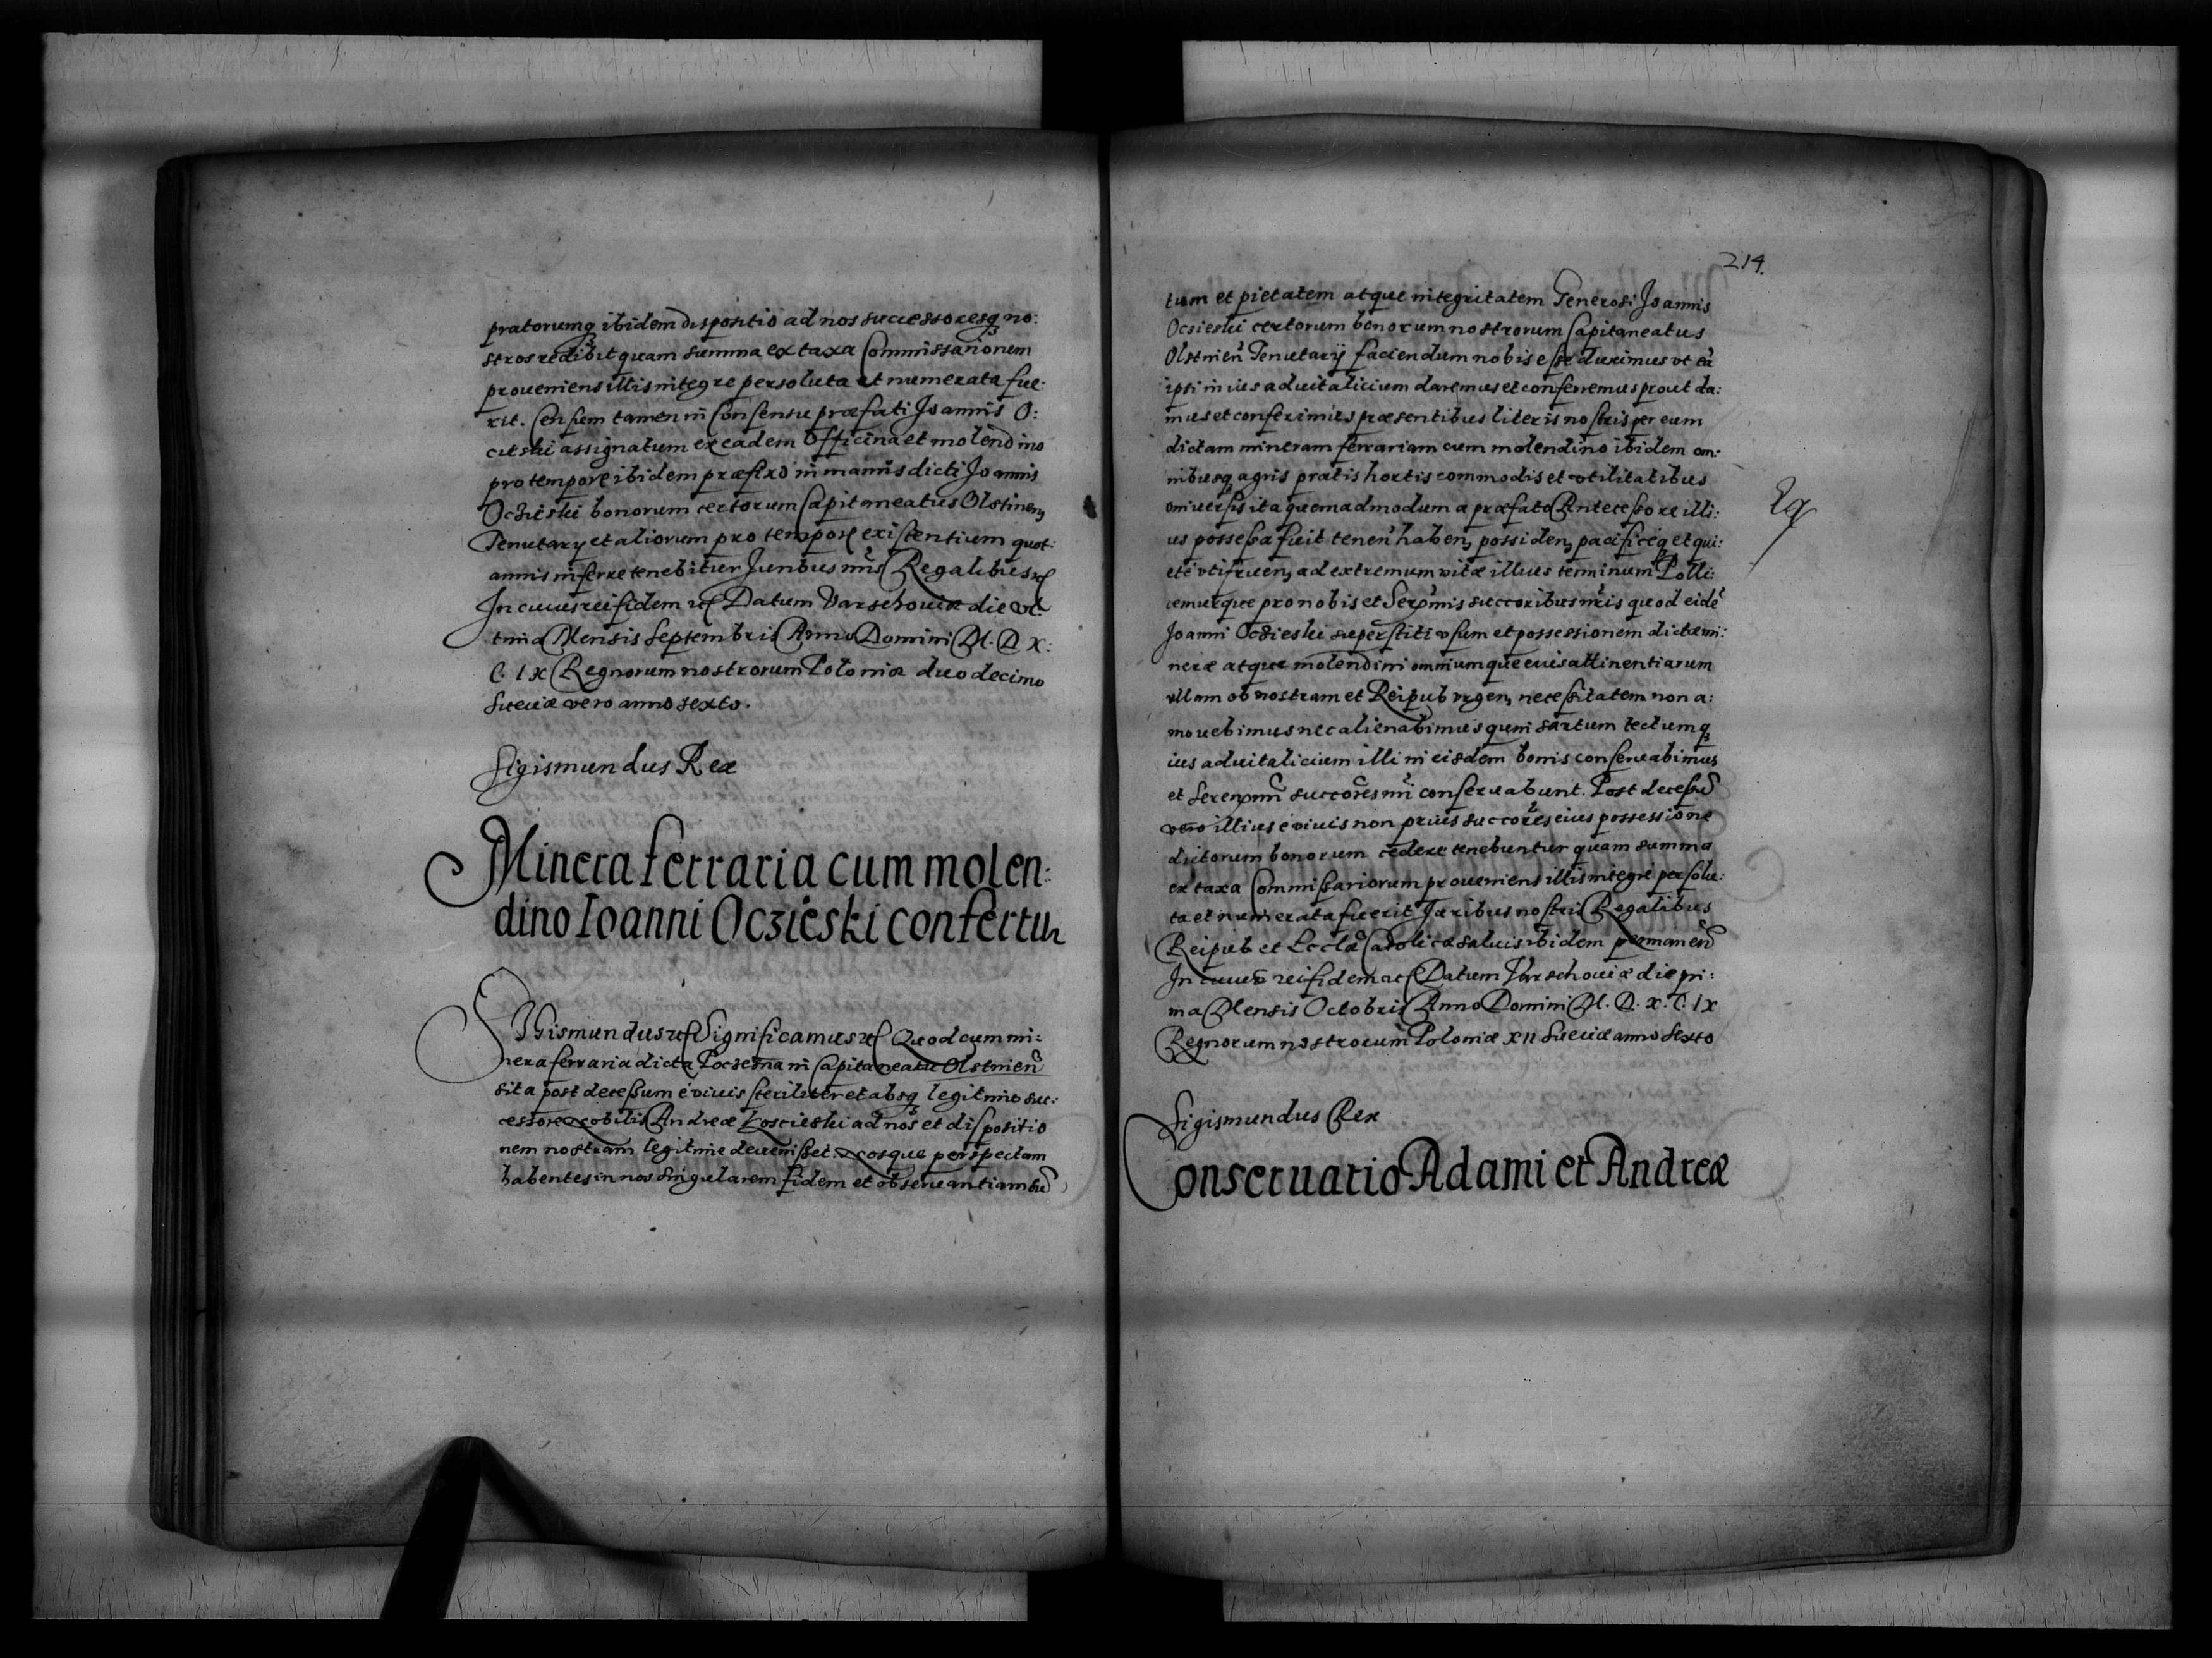 pratorumq ibidem dispositio ad nos successoresq no:
stros redibit quam summa ex taxa Commissarionem
proueniens illis integre persoluta et numerata fue:
rit. Censem tamen in Consensu præfati Joannis O:
cieski assignatum ex eadem Officina et molendino
pro tempore ibidem præfixo in manus dicti Joannis
Oczieski bonorum certorum Capitaneatus Olstinen
Tenutarÿ et aliorum pro tempore existentium quot:
annis inferre tenebitur Juribus nris Regalibus etc
In cuius rei fidem etc Datum Varschouiæ die vl:
tima Mensis Septembris Anno Domini M. D. X:
C. IX Regnorum nostrorum Poloniæ duodecimo
Sueciæ vero anno sexto.
Sigismundus Rex
Minera ferraria cum molen:
dino Ioanni Oczieski confertur
Sigismundus etc Significamus etc Quod cum mi:
nera ferraria dicta Poczesna in Capitaneatu Olstinen
sita post decessum e viuis steriliter et absq legitimo suc:
cessore Nobilis Andreæ Koscieski ad nos et dispositio
nem nostram legitime deuenisset Nosque perspectam
habentes in nos singularem fidem et obseruantiam tu
214.
tum et pietatem atque integritatem Generosi Joannis
Ocsieski certorum bonorum nostrorum Capitaneatus
Olstinen Tenutarÿ faciendum nobis esse duximus vt ea
ipsi in ius aduitalicium daremus et conferremus prout da:
mus et conferimus præsentibus literis nostris per eum
dictam mineram ferrariam cum molendino ibidem om:
nibusq agris pratis hortis commodis et vtilitatibus
vniuersis ita quemadmodum a præfato Antecessore illi:
us possessa fuit tenen haben possiden pacificeq et qui:
ete vtifruen ad extremum vitæ illius terminum Polli:
cemurque pro nobis et Serenmis succoribus nris quod eide
Joanni Oczieski superstiti vsum et possessionem dictæ mi:
neræ atque molendini omniumque eius attinentiarum
vllam ob nostram et Reipub vrgen necessitatem non a:
mouebimus nec alienabimus quin sartum tectumq
ius aduitalicium illi in eisdem bonis conseruabimus
et Serenmi succores nri conseruabunt. Post decessu
vero illius e viuis non prius succores eius possessione
dictorum bonorum cedere tenebuntur quam summa
ex taxa Commissariorum proueniens illis integre persolu:
ta et numerata fuerit Juribus nostris Regalibus
Reipub et Ecclæ Catolicæ saluis ibidem permanen
In cuius rei fidem etc Datum Varschouiæ die pri:
ma Mensis Octobris Anno Domini M. D. X. C. IX
Regnorum nostrorum Poloniæ XII Sueciæ anno sexto
Sigismundus Rex
Conseruatio Adami et Andreæ